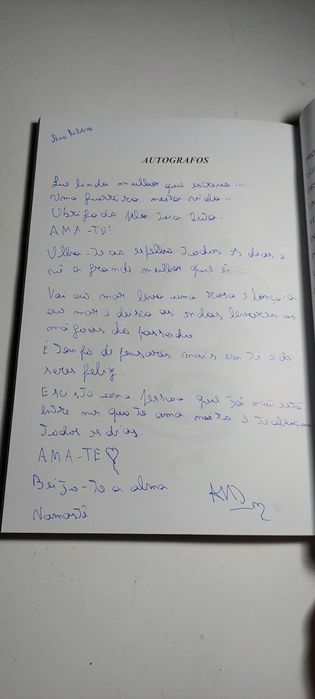 AUTOGRAFOS
Que linda mulher que escreve...
Uma guerreira nesta vida...
Obrigada pla tua luta.
AMA-TE!
Olha-te ao espelho todos os dias e
vê a grande mulher que és...
Vai ao mar leva uma rosa e lança-a
ao mar e deixa as ondas levarem as
mágoas do passado
É tempo de pensares mais em ti e de
seres feliz.
Existe uma pessoa que já não está
entre nós que te ama muito e
todos os dias
AMA-TE
Beijo-te a alma
Namastê